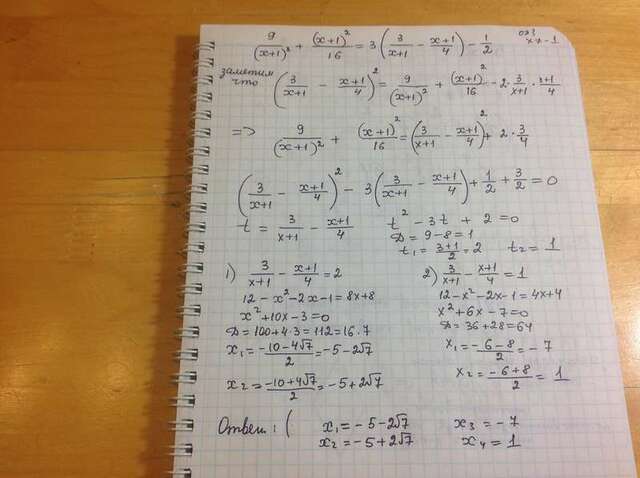 9/(x+1)² + (x+1)²/16 = 3(3/(x+1) − (x+1)/4) − 1/2 ОДЗ x≠-1
заметим что (3/(x+1) − (x+1)/4)² = 9/(x+1)² + (x+1)²/16 − 2·3/(x+1)·(x+1)/4
=> 9/(x+1)² + (x+1)²/16 = (3/(x+1) − (x+1)/4)² + 2·3/4
(3/(x+1) − (x+1)/4)² − 3(3/(x+1) − (x+1)/4) + 1/2 + 3/2 = 0
t = 3/(x+1) − (x+1)/4 t² − 3t + 2 = 0
D = 9−8 = 1
t₁ = (3+1)/2 = 2 t₂ = 1
1) 3/(x+1) − (x+1)/4 = 2
12 − x² − 2x − 1 = 8x+8
x² + 10x − 3 = 0
D = 100+4·3 = 112 = 16·7
x₁ = (−10−4√7)/2 = −5−2√7
x₂ = (−10+4√7)/2 = −5+2√7
2) 3/(x+1) − (x+1)/4 = 1
12 − x² − 2x − 1 = 4x+4
x² + 6x − 7 = 0
D = 36+28 = 64
x₁ = (−6−8)/2 = −7
x₂ = (−6+8)/2 = 1
Ответ: ( x₁ = −5−2√7 x₃ = −7
x₂ = −5+2√7 x₄ = 1